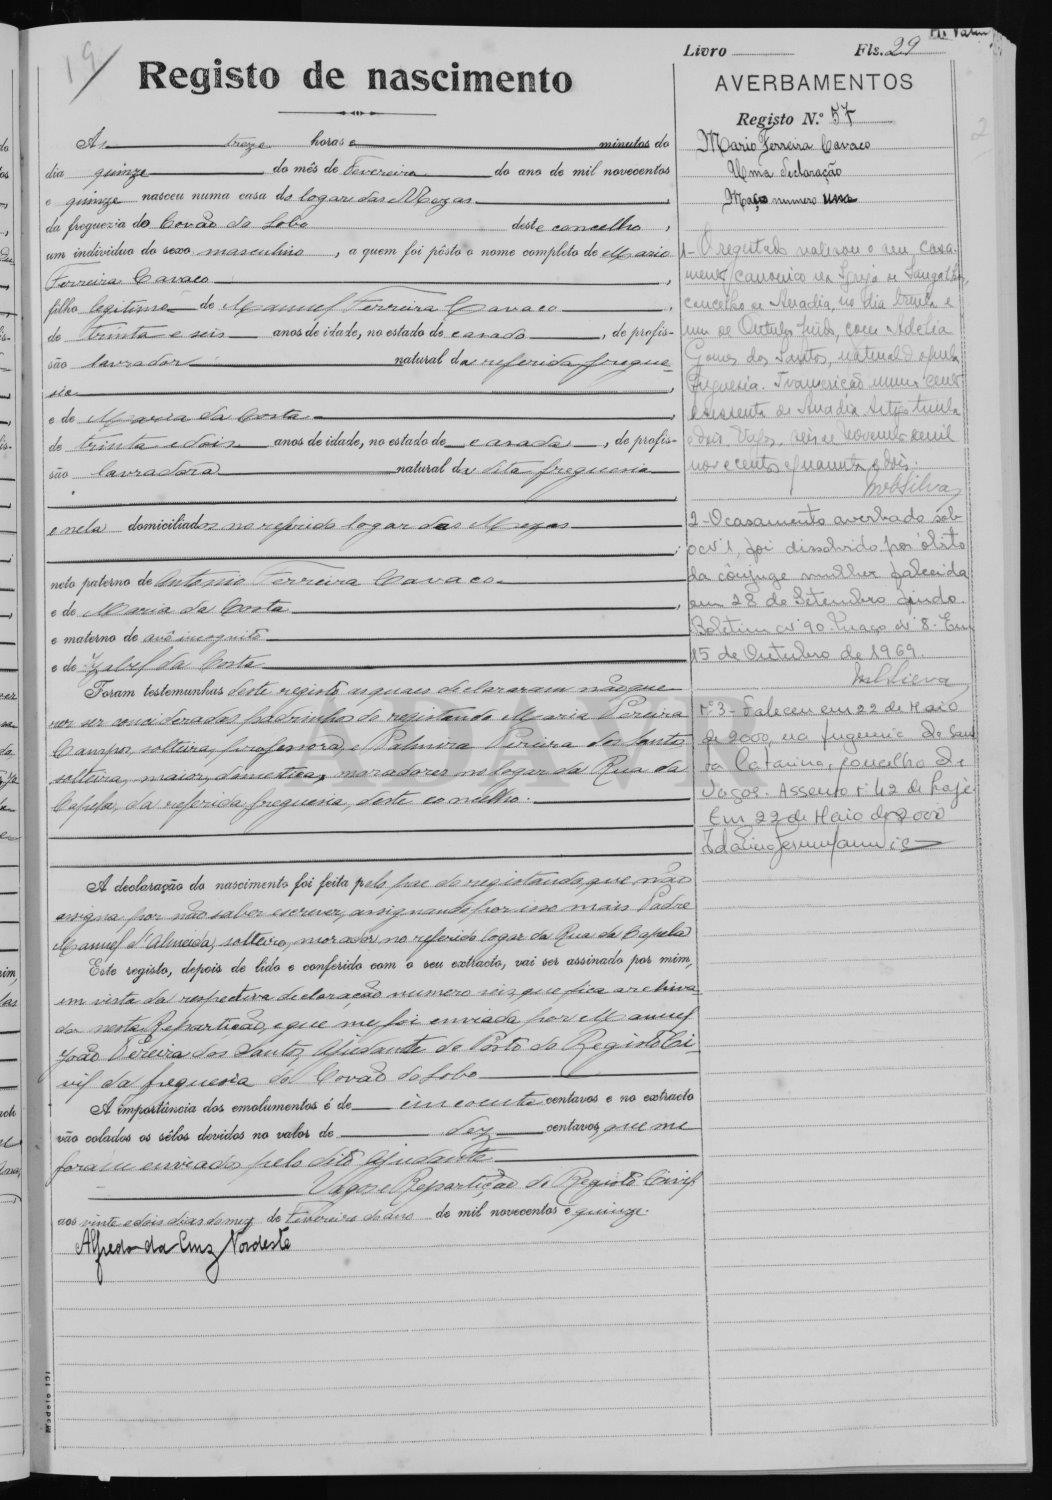 19
Registo de nascimento
Ás treze horas e minutos do
dia quinze do mês de Fevereiro do ano de mil novecentos
e quinze nasceu numa casa do logar das Mezas,
da freguezia do Covão do Lobo deste concelho,
um individuo do sexo masculino, a quem foi pôsto o nome completo de Mario
Ferreira Cavaco,
filho legitimo de Manuel Ferreira Cavaco,
de trinta e seis anos de idade, no estado de casado, de profis-
são lavrador natural da referida fregue-
sia,
e de Maria da Costa,
de trinta e dois anos de idade, no estado de casada, de profis-
são lavradora natural da dita freguesia
e nela domiciliados no referido logar das Mezas
neto paterno de Antonio Ferreira Cavaco
e de Maria da Costa,
e materno de avô incognito
e de Izabel da Costa
Foram testemunhas deste registo, as quaes declararam não que-
rer ser consideradas padrinhos do registando Maria Pereira
Campos, solteira, professora, e Palmira Pereira dos Santos
solteira, maior, domestica, moradores no logar da Rua da
Capela, da referida freguesia, deste concelho.
A declaração do nascimento foi feita pelo pae do registando, que não
assigna, por não saber escrever, assignando por isso mais Padre
Manuel d'Almeida, solteiro, morador no referido logar da Rua da Capela
Este registo, depois de lido e conferido com o seu extracto, vai ser assinado por mim,
em vista da respectiva declaração numero seis, que fica archiva-
da nesta Repartição, e que me foi enviada por Manuel
João Pereira dos Santos, Ajudante do Posto do Registo Ci-
vil da freguesia do Covão do Lobo
A importância dos emolumentos é de cincoenta centavos e no extracto
vão colados os sêlos devidos no valor de dez centavos, que me
foram enviados pelo dito Ajudante
Vagos e Repartição do Registo Civil
aos vinte e dois dias do mez de Fevereiro do ano de mil novecentos e quinze.
Alfredo da Cruz Nordeste
Modelo 151
Livro Fls. 29
AVERBAMENTOS
Registo N.º 57
Mario Ferreira Cavaco
Uma declaração
Maço numero um
1- O registado realizou o seu casa-
mento canonico na Igreja de Sangalhos,
concelho de Anadia, no dia trinta e
um de Outubro findo, com Adelia
Gomes dos Santos, natural d'aquela
freguesia. Transcrição numero cento
e sessenta de Anadia.
e dois. Vagos, seis de Novembro de mil
novecentos e quarenta e dois.
2- O casamento averbado sob
o nº 1, foi dissolvido por óbito
da cônjuge mulher falecida
em 28 de Setembro findo.
Boletim nº 90. Maço nº 8. Em
15 de Outubro de 1969.
nº 3- Faleceu em 22 de Maio
de 2000, na freguesia de San-
ta Catarina, concelho de
Vagos. Assento nº 42 de hoje.
Em 22 de Maio de 2000
ADAVR